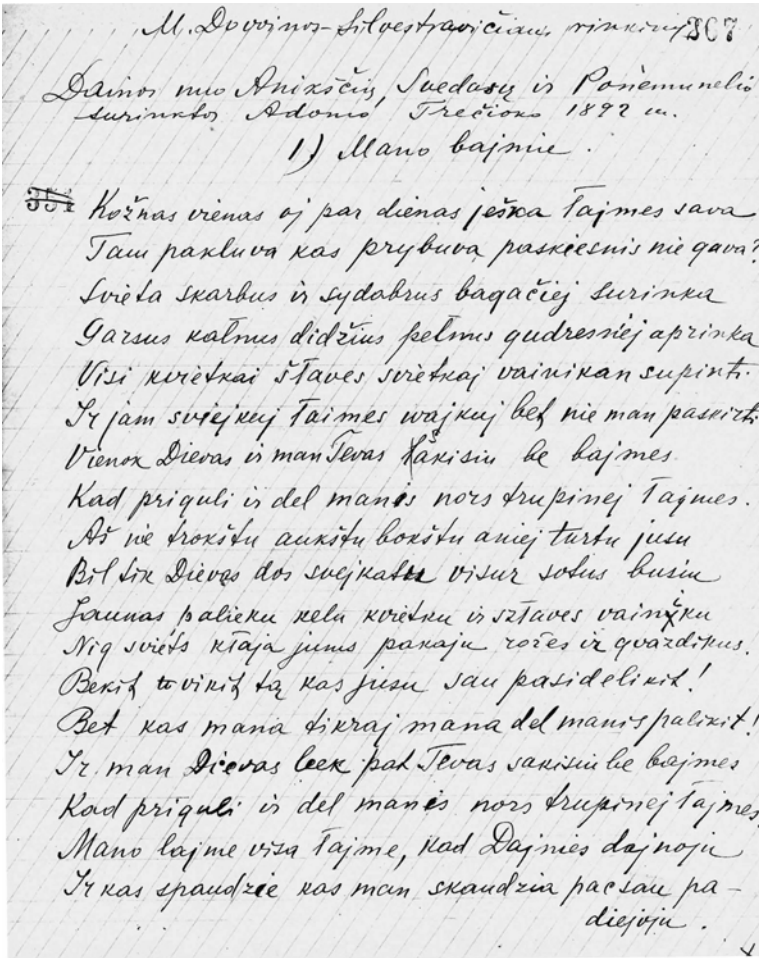 M. Dovoinos-Silvestravičiaus rinkinys 367
Dainos nuo Anikščių, Svedasų ir Ponemunelio
surinktos Adomo Trečioko 1892 m.
1) Mano bajmie.
351 Kožnas vienas oj par dienas ješka łajmes sava
Tam pakluva kas prybuva paskiesnis nie gava?
Svieta skarbus ir sydabrus bagačiej surinka
Garsus kałnus didžius pełnus gudresniej aprinka
Visi kvietkai słaves svietkaj vainikan supinti.
Ir jam sviejkuj łaimes wajkuj bet nie man paskirti
Vienok Dievas ir man Tevas sakisiu be bajmes
Kad priguli ir del manis nors trupinej łajmes.
Aš nie trokštu aukštu bokštu aniej turtu jusu
Bil tik Dievas dos svejkatu visur sotus busiu
Jaunas palieku kelu kvietku ir sztaves vainiku
Nig sviets kłaja jums pakaju rožes ir gvazdikus.
Bekit vikit tą kas jusu sau pasidelikit!
Bet kas mana tikraj mana del manis palikit!
Ir man Dievas leek pat Tevas sakisiu be bajmes
Kad priguli ir del manis nors trupinej łajmes.
Mano lajme visa łajme, kad Dajnies dajnoju
Ir kas spaudzie kas man skaudzia pacsau pa-
diejoju.